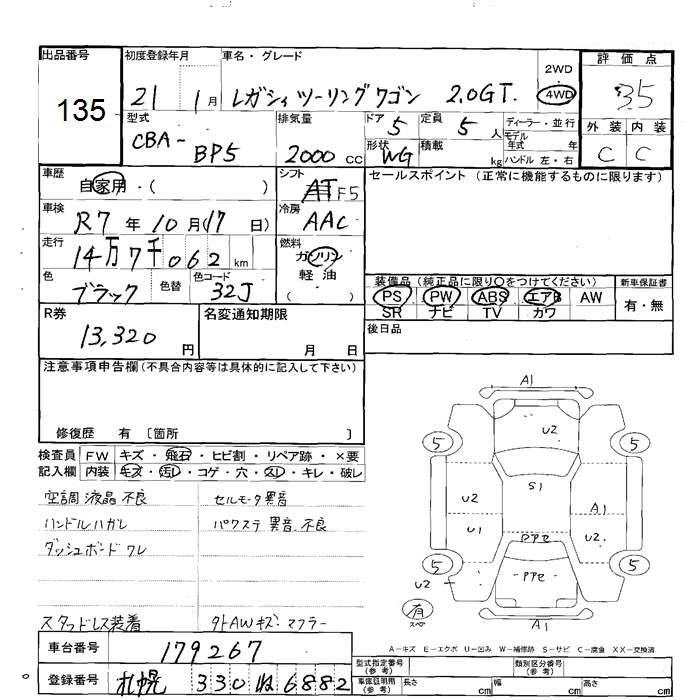 出品番号
135
初度登録年月
21 1月
車名・グレード
レガシィツーリングワゴン 2.0GT.
2WD
4WD
評価点
3.5
外装 内装
C C
型式
CBA-
BP5
排気量
2000 CC
ドア 5
形状 WG
定員 5 人
積載 kg
ディーラー・並行
モデル年式 年
ハンドル 左・右
車歴
自家用・( )
シフト
AT F5
セールスポイント (正常に機能するものに限ります)
車検
R7年 10月(17日)
冷房
AAC
走行
14万7千062 km
燃料
ガソリン
軽油
( )
色
ブラック
色替
色コード
32J
装備品(純正品に限り○をつけてください)
PS PW ABS エアB AW
SR ナビ TV カワ
新車保証書
有・無
R券
13,320 円
名変通知期限
月 日
後日品
注意事項申告欄(不具合内容等は具体的に記入して下さい)
修復歴 有 〔箇所 〕
検査員 FW キズ・飛石・ヒビ割・リペア跡・×要
記入欄 内装 キズ・汚レ・コゲ・穴・スレ・キレ・破レ
空調液晶不良
ハンドルハガレ
ダッシュボードワレ
セルモータ異音
パワステ異音、不良
スタッドレス装着
タトAWキズ・マフラー
車台番号
179267
登録番号
札幌 330 ね 6882
A1
U2
5
5
S1
U2
A1
U1
U2
PPセ
PPセ
5
5
U2
有
スペア
A1
A-キズ E-エクボ U-凹み W-補修跡 S-サビ C-腐食 XX-交換済
型式指定番号(参考)
類別区分番号(参考)
車庫証明用(参考)
長さ cm
幅 cm
高さ cm